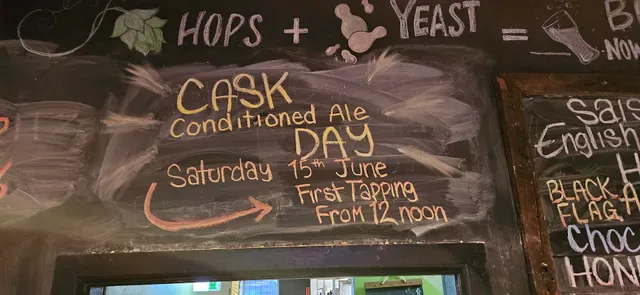 HOPS + YEAST =
CASK
Conditioned Ale
DAY
Saturday 15th June
First Tapping
From 12 noon
NOW
English
BLACK
FLAG
CHOC
HON